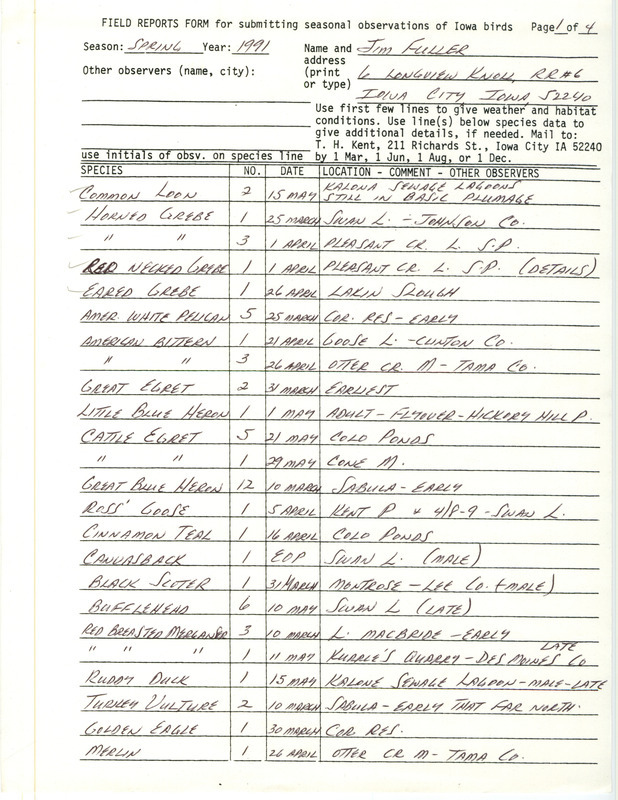 FIELD REPORTS FORM for submitting seasonal observations of Iowa birds Page 1 of 4
Season: SPRING Year: 1991 Name and JIM FULLER
address
Other observers (name, city): (print 6 LONGVIEW KNOLL, RR#6
or type) IOWA CITY IOWA, 52240
Use first few lines to give weather and habitat
conditions. Use line(s) below species data to
give additional details, if needed. Mail to:
T. H. Kent, 211 Richards St., Iowa City IA 52240
use initials of obsv. on species line by 1 Mar, 1 Jun, 1 Aug, or 1 Dec.
SPECIES NO. DATE LOCATION - COMMENT - OTHER OBSERVERS
COMMON LOON 2 15 MAY KALONA SEWAGE LAGOONS
STILL IN BASIC PLUMAGE
HORNED GREBE 1 25 MARCH SWAN L. - JOHNSON CO.
" " 3 1 APRIL PLEASANT CR. L. S.P.
RED NECKED GREBE 1 1 APRIL PLEASANT CR. L. S.P. (DETAILS)
EARED GREBE 1 26 APRIL LAKIN SLOUGH
AMER. WHITE PELICAN 5 25 MARCH COR. RES - EARLY
AMERICAN BITTERN 1 21 APRIL GOOSE L. - CLINTON CO.
" " 3 26 APRIL OTTER CR. M - TAMA CO.
GREAT EGRET 2 31 MARCH EARLIEST
LITTLE BLUE HERON 1 1 MAY ADULT - FLYOVER - HICKORY HILL P.
CATTLE EGRET 5 21 MAY COLO PONDS
" " 1 29 MAY CONE M.
GREAT BLUE HERON 12 10 MARCH SABULA - EARLY
ROSS' GOOSE 1 5 APRIL KENT P & 4/8-9 - SWAN L.
CINNAMON TEAL 1 16 APRIL COLO PONDS
CANVASBACK 1 EOP SWAN L. (MALE)
BLACK SCOTER 1 31 MARCH MONTROSE - LEE CO. (MALE)
BUFFLEHEAD 6 10 MAY SWAN L (LATE)
RED BREASTED MERGANSER 3 10 MARCH L. MACBRIDE - EARLY
" " " 1 11 MAY KURRLE'S QUARRY - DES MOINES CO LATE
RUDDY DUCK 1 15 MAY KALONE SEWAGE LAGOON - MALE - LATE
TURKEY VULTURE 2 10 MARCH SABULA - EARLY THAT FAR NORTH.
GOLDEN EAGLE 1 30 MARCH COR RES.
MERLIN 1 26 APRIL OTTER CR M - TAMA CO.